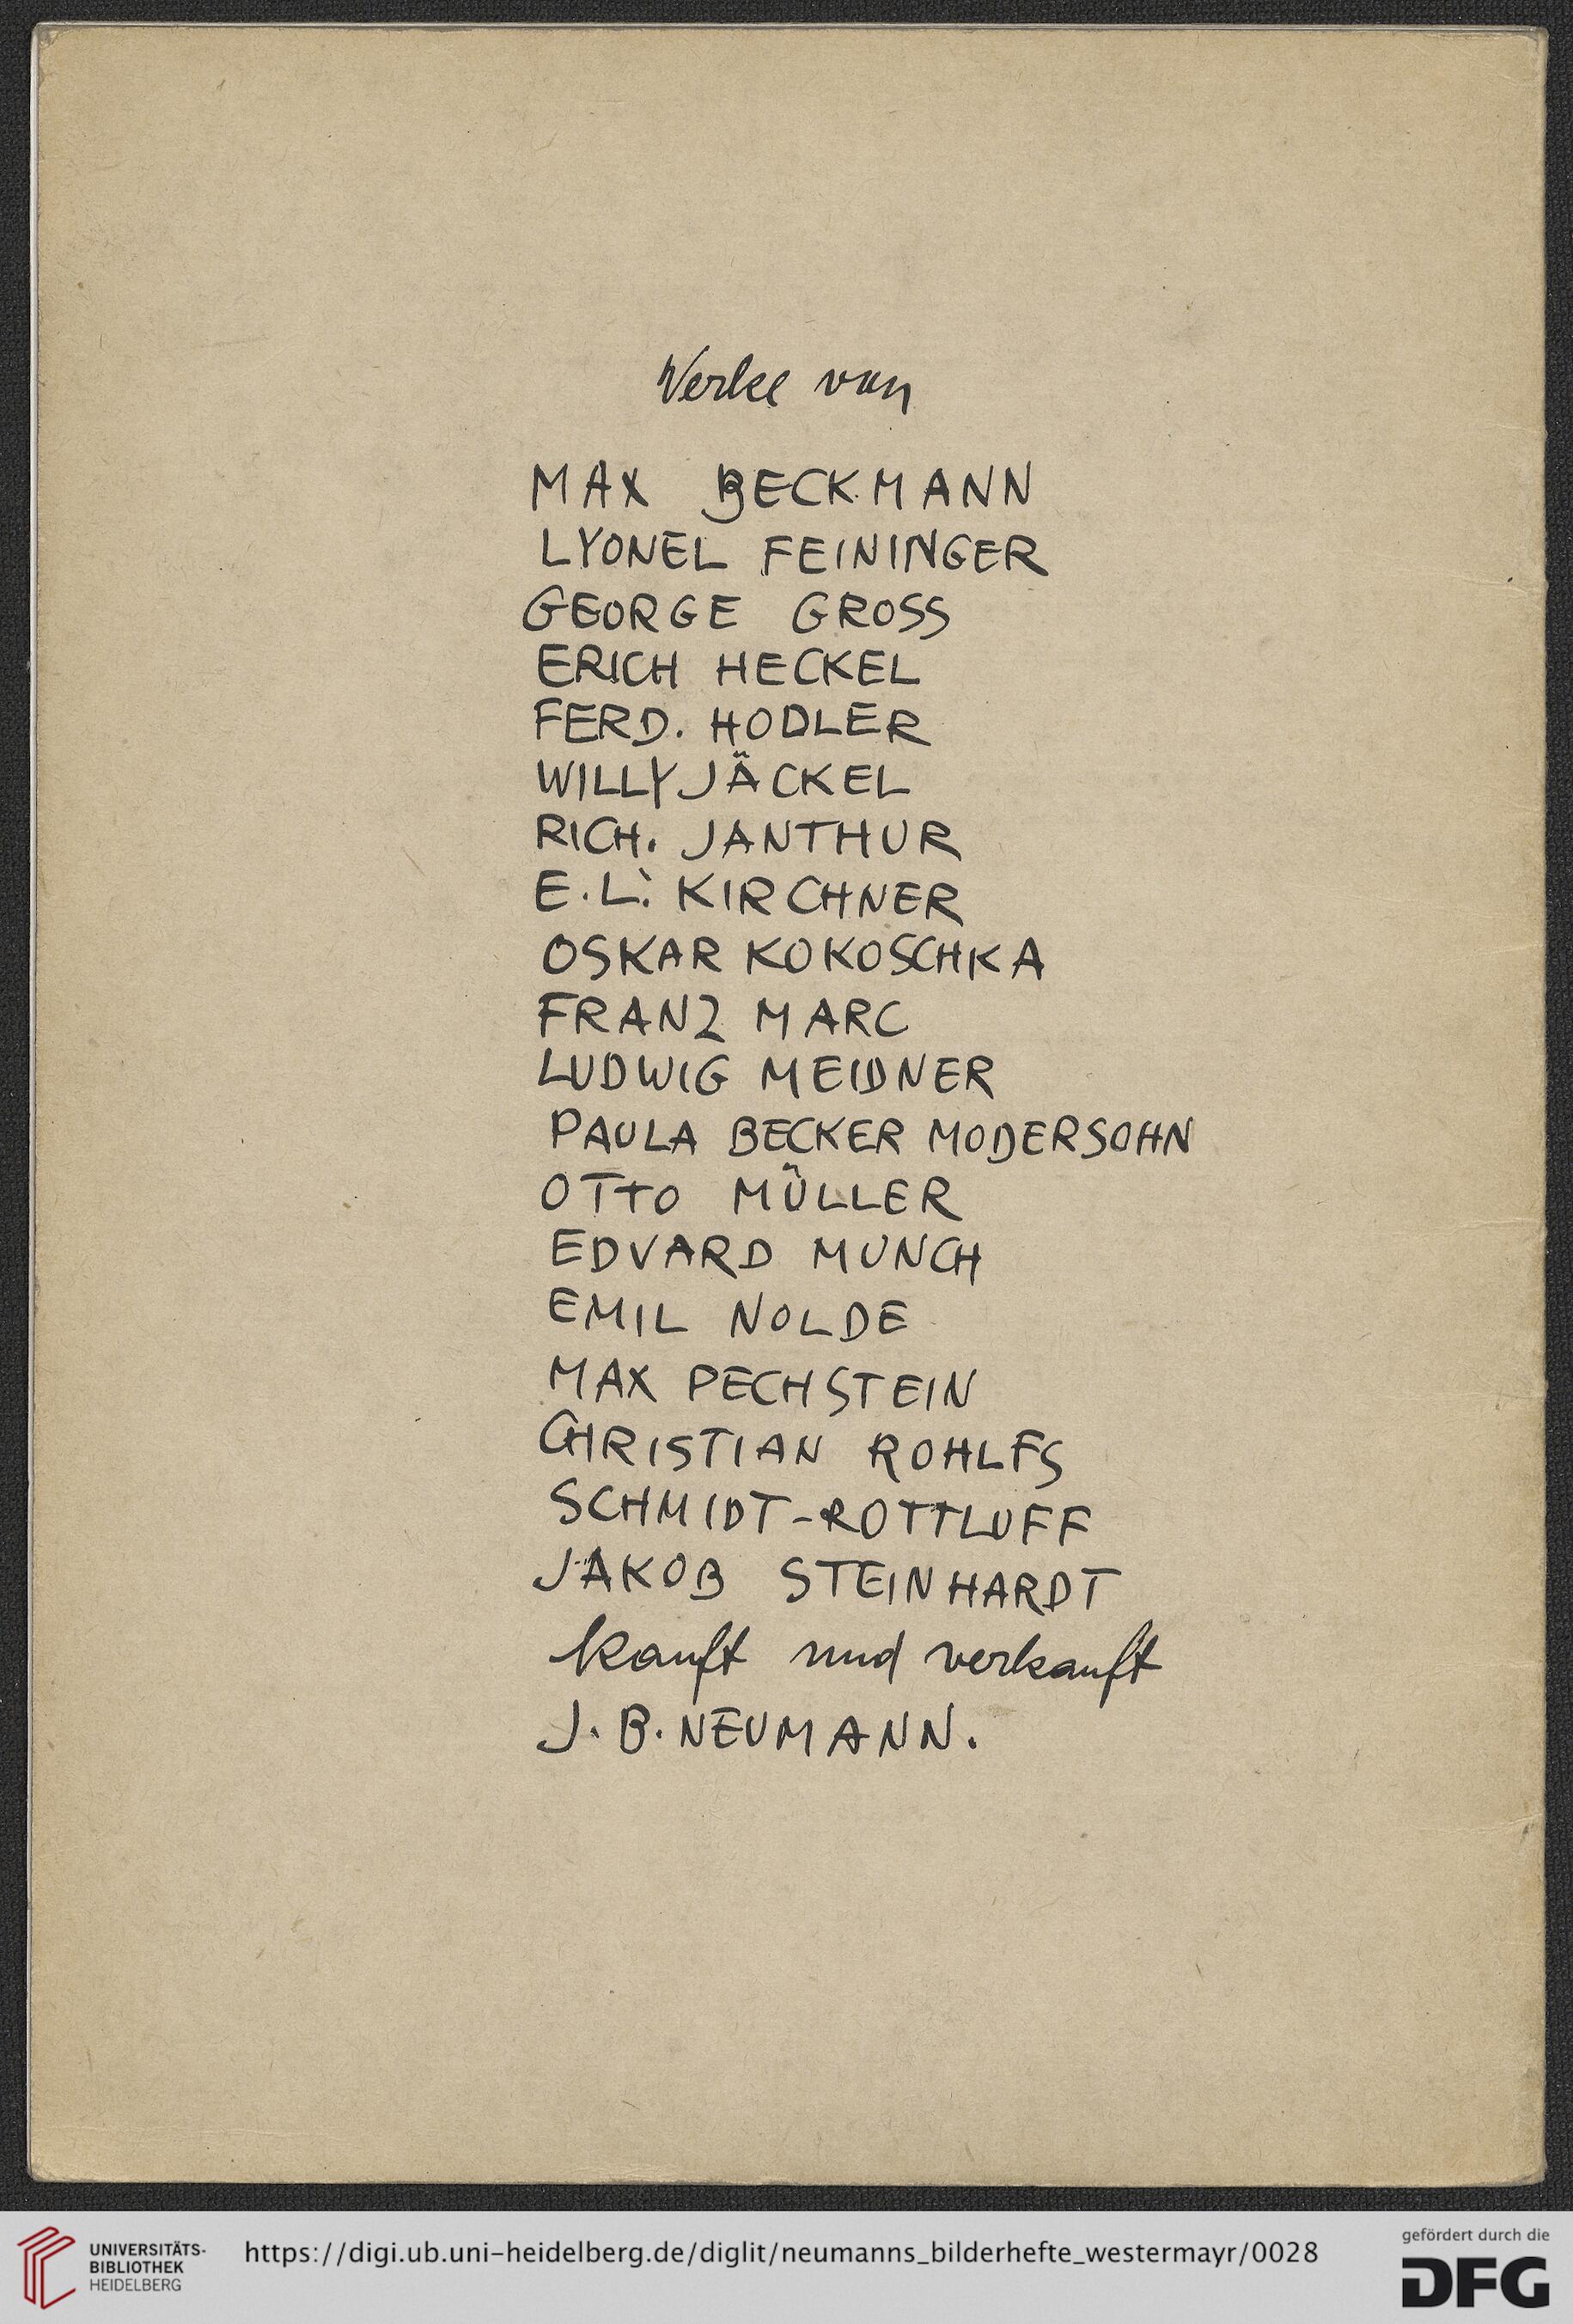 Werke von
MAX BECKMANN
LYONEL FEININGER
GEORGE GROSS
ERICH HECKEL
FERD. HODLER
WILLY JÄCKEL
RICH. JANTHUR
E. L. KIRCHNER
OSKAR KOKOSCHKA
FRANZ MARC
LUDWIG MEIDNER
PAULA BECKER MODERSOHN
OTTO MÜLLER
EDVARD MUNCH
EMIL NOLDE
MAX PECHSTEIN
CHRISTIAN ROHLFS
SCHMIDT-ROTTLUFF
JAKOB STEINHARDT
kauft und verkauft
J. B. NEUMANN.
UNIVERSITÄTS-
BIBLIOTHEK
HEIDELBERG
https://digi.ub.uni-heidelberg.de/diglit/neumanns_bilderhefte_westermayr/0028
gefördert durch die
DFG